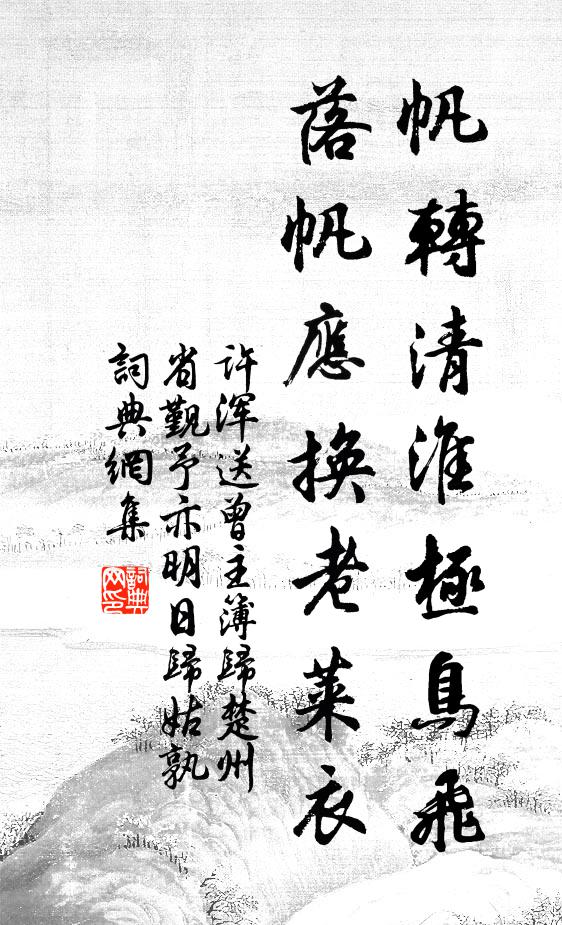 帆轉清淮極鳥飛
落帆應換老萊衣
许浑送曾主簿歸楚州
省觐予亦明日歸姑孰
詞典網集
詞典网印